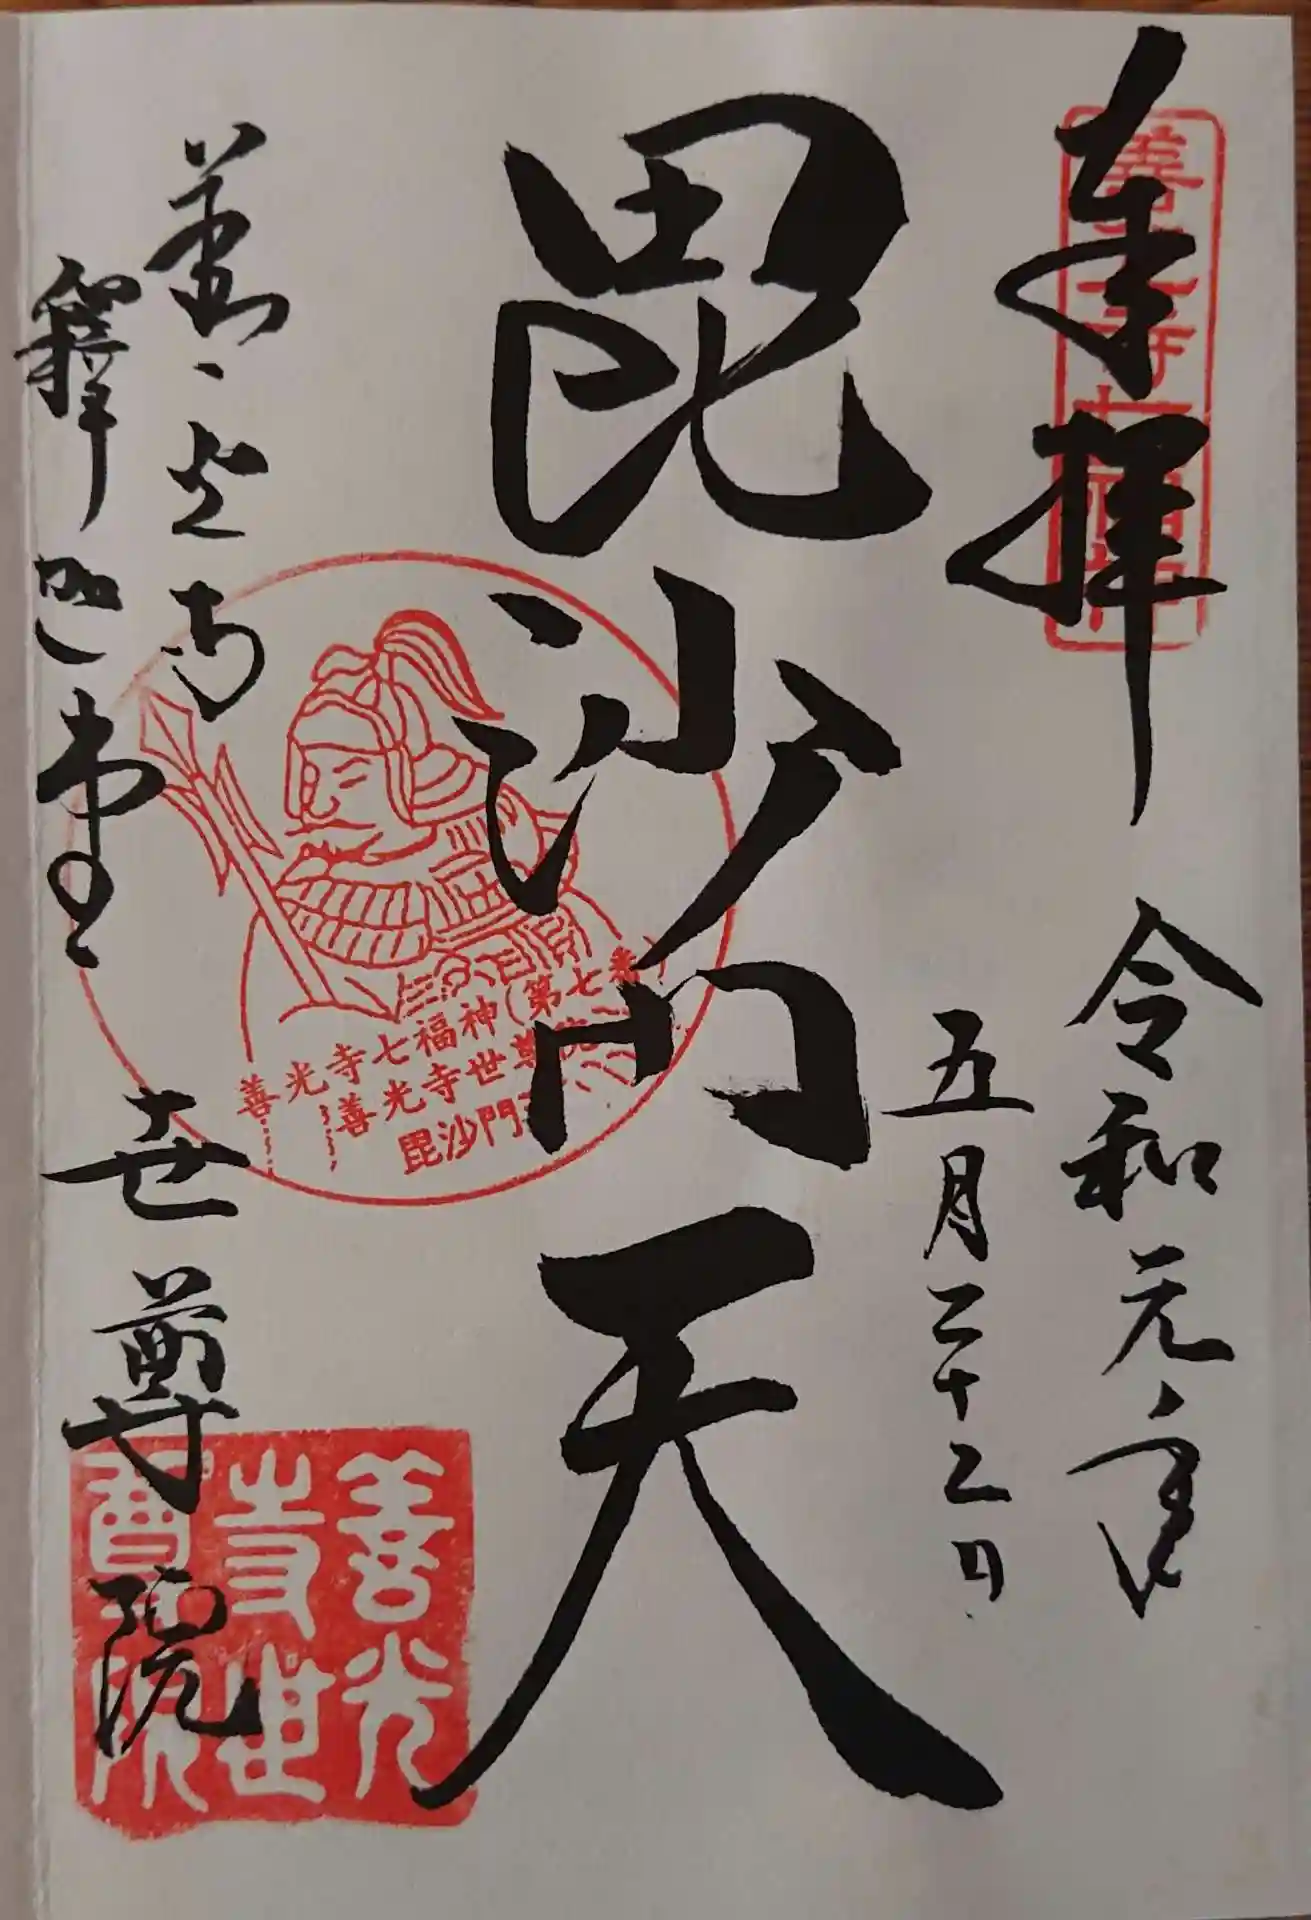 奉拝
善光寺七福神
令和元年
五月二十二日
毘沙門天
善光寺七福神(第七番)
善光寺世尊院
毘沙門天
善光寺
釋迦堂
世尊院
善光寺世尊院